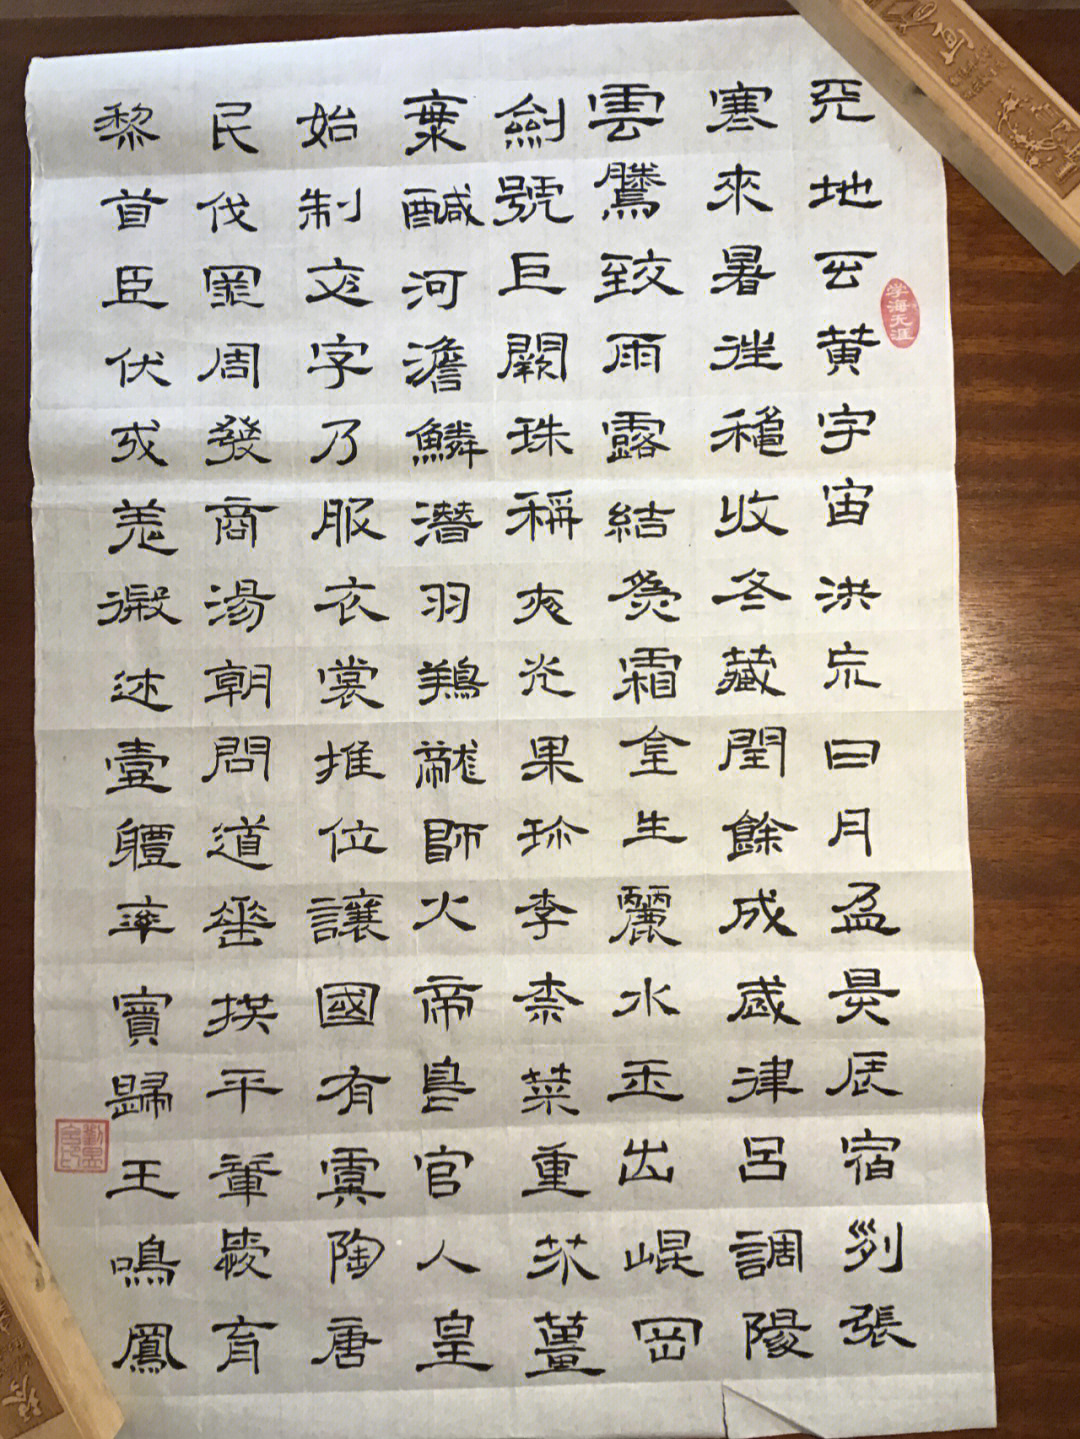 天地玄黄宇宙洪荒日月盈昃辰宿列張
学海无涯
寒來暑往秋收冬藏閏餘成歲律吕調陽
雲騰致雨露結為霜金生麗水玉出崐岡
劍號巨闕珠稱夜光果珍李柰菜重芥薑
海醎河澹鱗潛羽翔龍師火帝鳥官人皇
始制文字乃服衣裳推位讓國有虞陶唐
民伐罪周發商湯朝問道垂拱平章愛育
黎首臣伏戎羌遐迩壹體率賓歸王鳴鳳